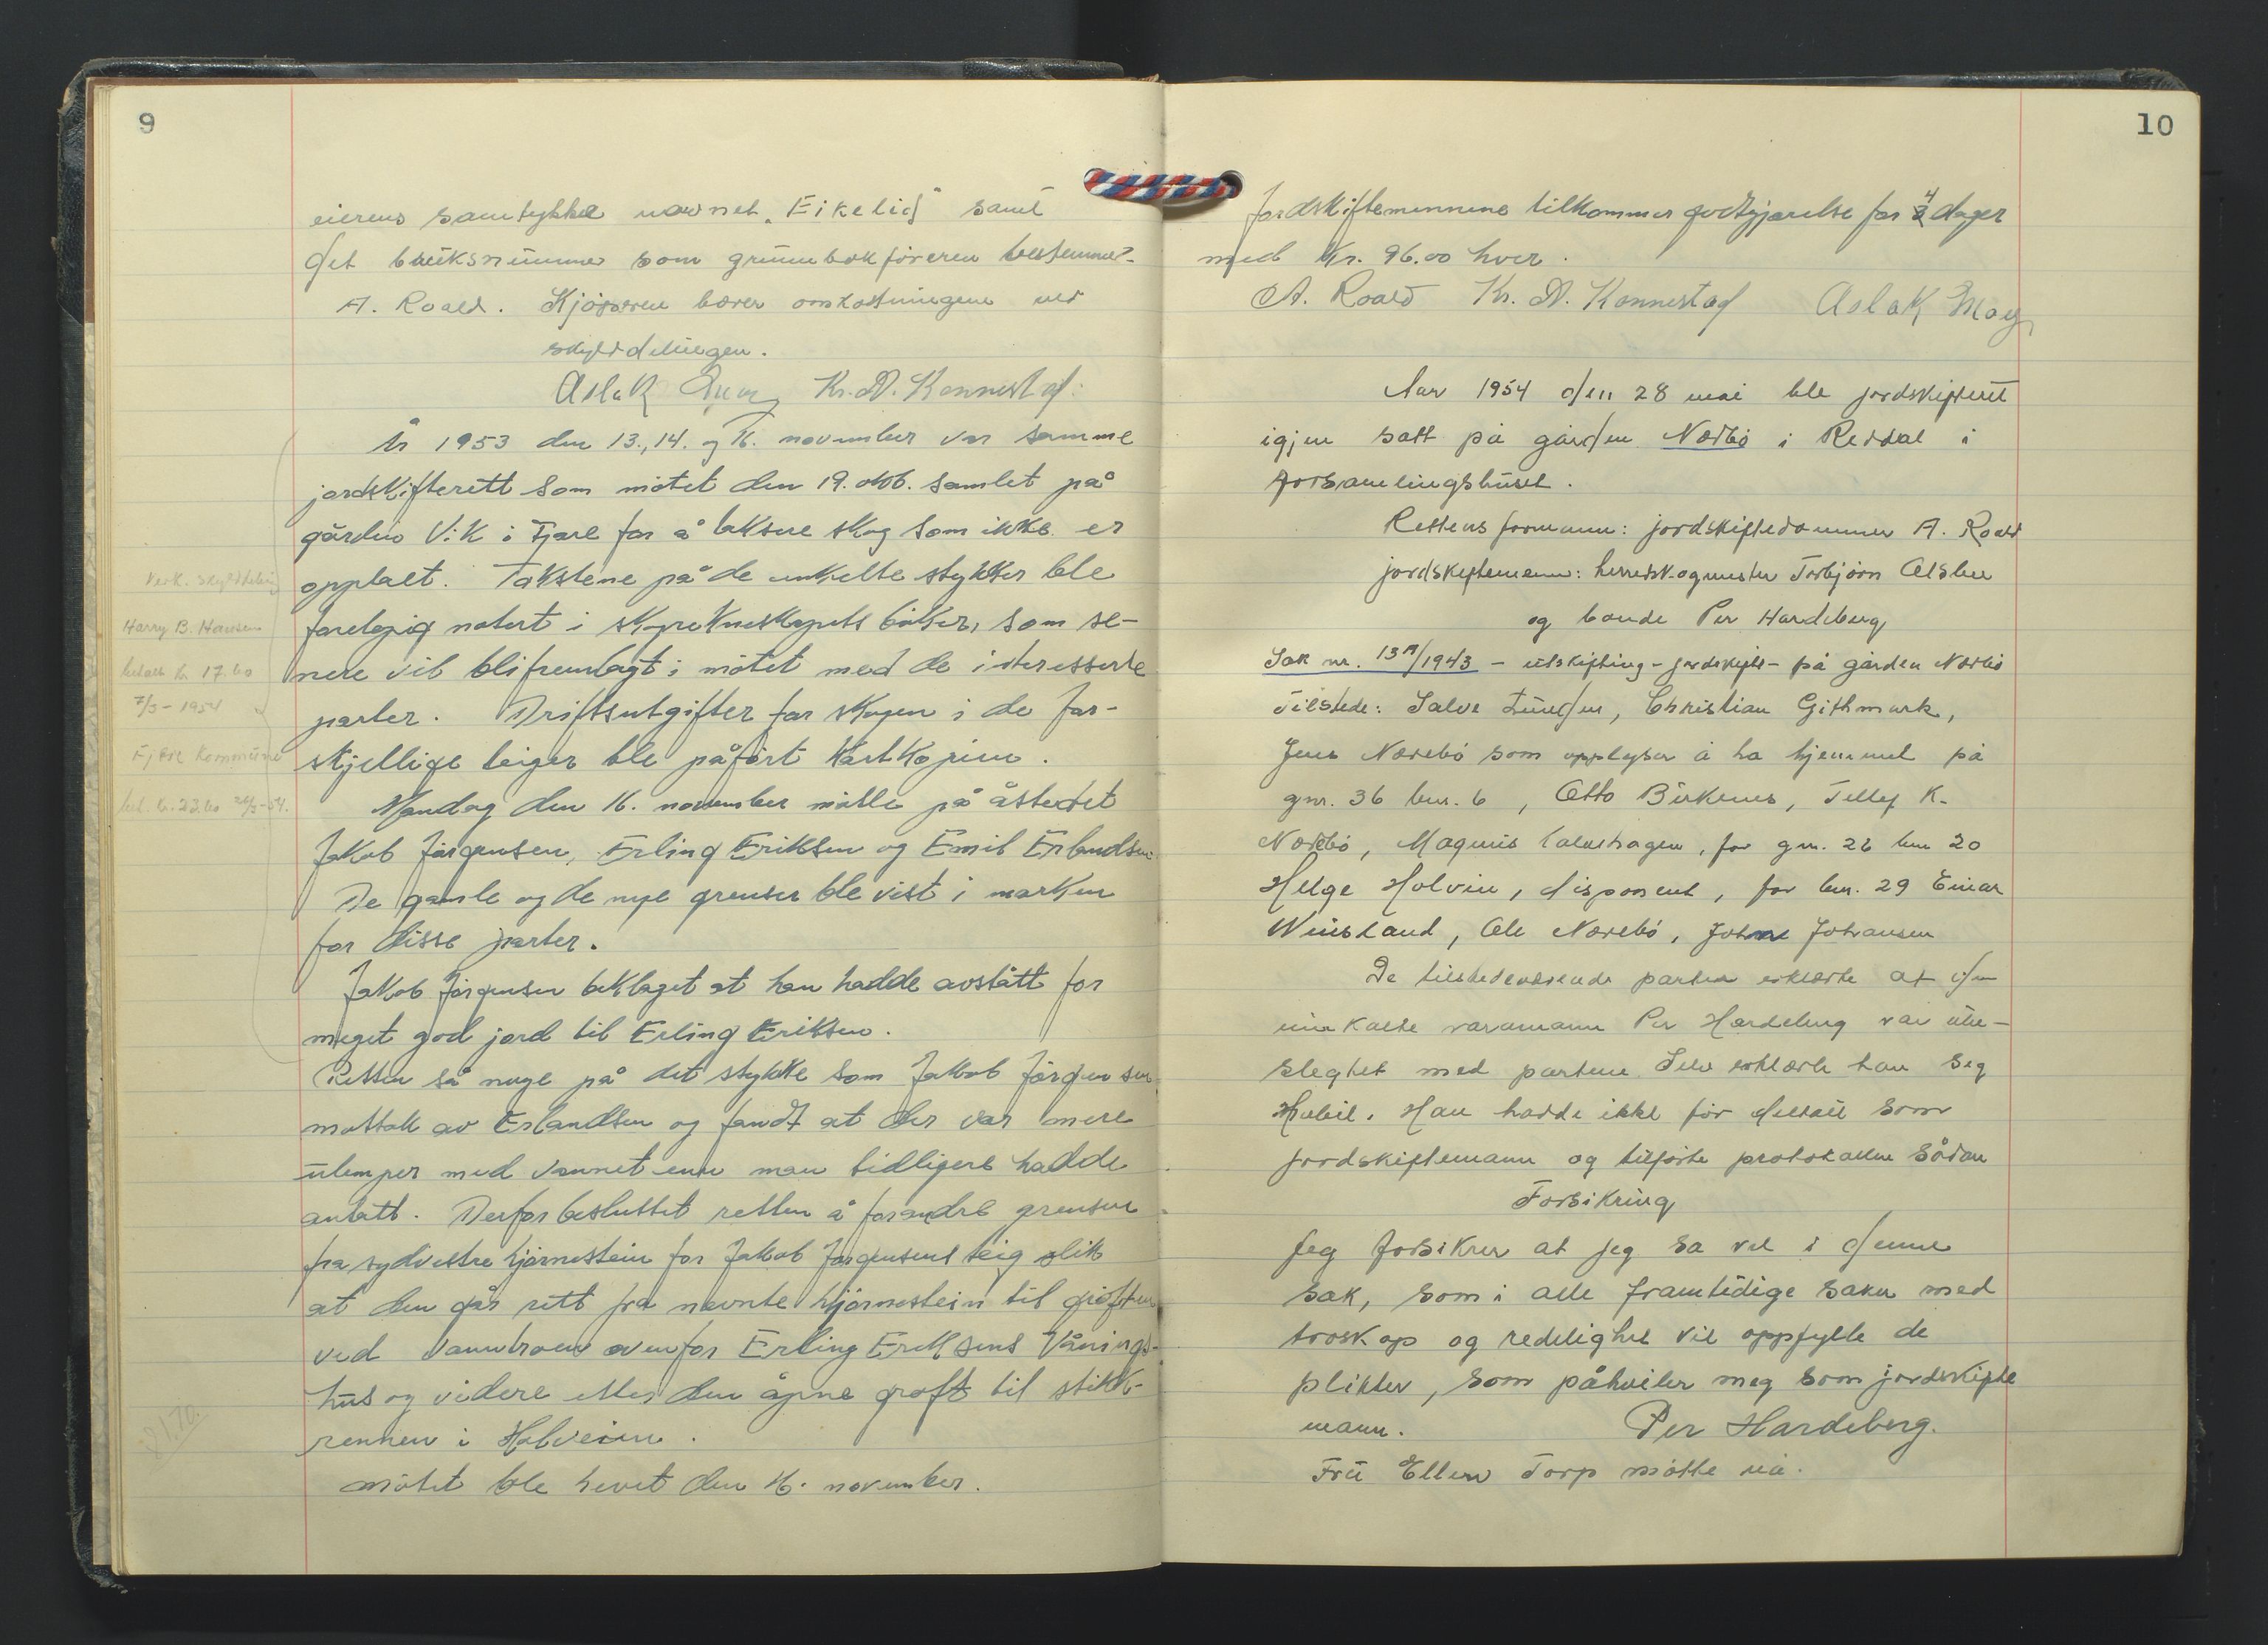 9
eierens samtykke navnet "Eikelid" samt
det brüksnümmer som grünnbokföreren bestemmer.
A. Roald. Kjöperen bærer omkostningene ved
skylddelingen.
Aslak Kr. A. Konnestad.
År 1953 den 13., 14. og 16. november var samme
jordskifterett som mötet den 19. okt. samlet på
gården Vik i Fjære for å taksere skog som ikke er
opptalt. Takstene på de enkelte stykker ble
forelöpig notert i skogreknskapets böker, som se-
nere vil bli fremlagt i mötet med de interesserte
parter. Driftsutgifter for skogen i de for-
skjellige teiger ble påfört kartkopien.
Mandag den 16. november mötte på åstedet
Jakob Jörgensen, Erling Eriksen og Emil Erlandsen.
De gamle og de nye grenser ble vist i marken
for disse parter.
Jakob Jörgensen beklaget at han hadde avstått for
meget god jord til Erling Eriksen.
Retten så nöye på det stykke som Jakob Jörgensen
mottok av Erlandsen og fandt at der var mere
ülemper med vannet enn man tidligere hadde
antatt. Derfor besluttet retten å forandre grensen
fra sydvestre hjörnestein for Jakob Jörgensens teig slik
at den går rett fra nevnte hjörnestein til gröften
ved vannbroen ovenfor Erling Eriksens Vånings-
hüs og videre etter den åpne gröft til stikk-
rennen i Holveien.
Mötet ble hevet den 16. november.
Verk. skylddeling
Harry B. Hansen
betalt kr 17.60
7/3 - 1954
Fjære kommüne
bet. kr. 23.60 26/3-54.
10
Jordskiftemennene tilkommer godtgjørelse for 4 dager
med Kr. 96.00 hver.
A. Roald Kr. A. Konnestad Aslak Moy
Aar 1954 den 28 mai ble jordskifterett
igjen satt på gården Nærbö i Reddal i
Forsamlingshüset.
Rettens formann: jordskiftedommer A. Roald
jordskiftemenn: herredskogmester Torbjörn Olsbu
og bonde Per Hardeberg
Sak nr. 13A/1943 - ütskifting - jordskifte - på gården Nærbö
Tilstede: Salve Lünden, Christian Githmark,
Jens Nærebö som opplyser å ha hjemmel på
gnr. 36 bnr. 6, Otto Birkenes, Tellef K.
Nærbö, Magnüs Calvehagen, for gnr. 26 bnr 20
Helge Holvin, disponent, for bnr. 29 Einar
Winsland, Ole Nærebö, Johan Johansen
De tilstedeværende parter erklærte at den
innkalte varamann Per Hardeberg var übe-
slegtet med partene. Selv erklærte han seg
Habil. Han hadde ikke för deltatt som
jordskiftemann og tilförte protokollen sådan
Forsikring
Jeg forsikrer at jeg sa vel i denne
sak, som i alle framtidige saker med
troskap og redelighet vil oppfylle de
plikter, som påhviler meg som jordskifte
mann. Per Hardeberg.
Frü Ellen Torp mötte nå.